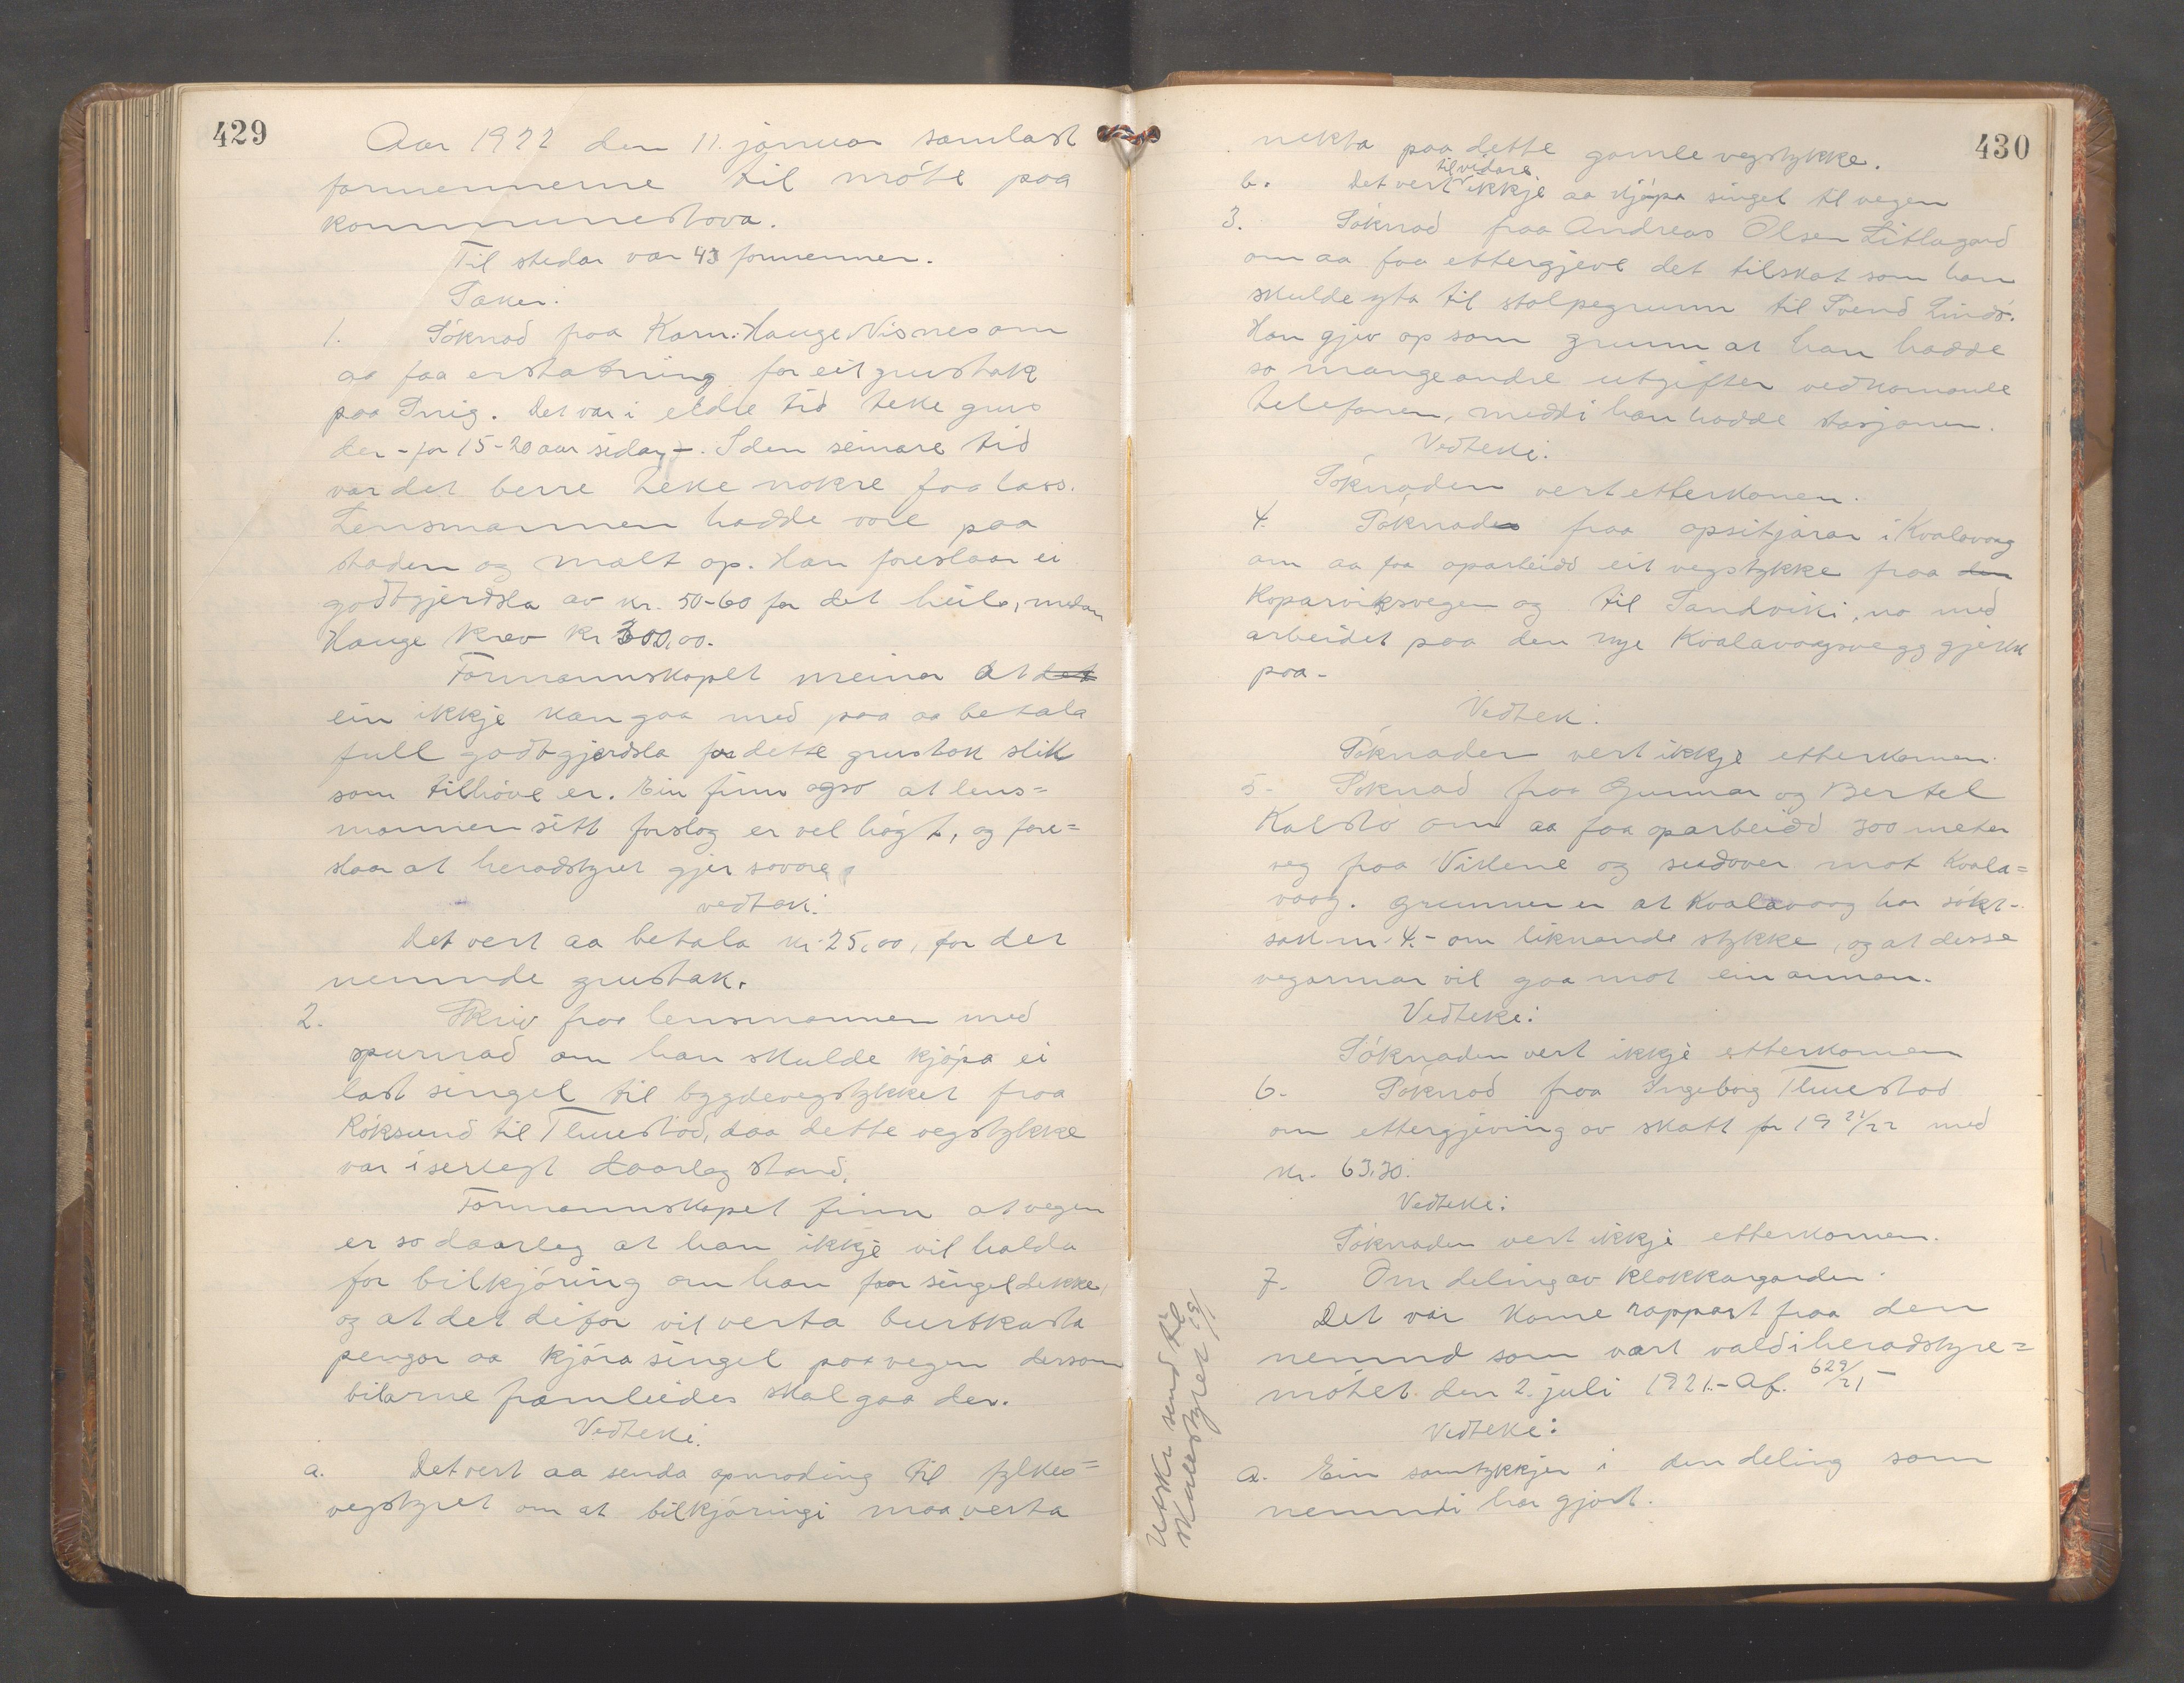 429
Aar 1922 den 11. januar samlast
formennerne til møte paa
kommunestova.
Til stedar var 43 formenner.
Saker:
1. Søknad fraa Karn. Hauge Visnes om
aa faa erstatning for eit grustak
paa Snig. Det var i eldre tid teke grus
der - for 15-20 aar sidan -. I den seinare tid
var det berre teke nokre faa lass.
Lensmannen hadde vore paa
staden og malt op. Han foreslaar ei
godtgjerdsla av kr. 50-60 for det heile, medan
Hauge krev kr 300,00.
Formannskapet meiner at det
ein ikkje kan gaa med paa aa betala
full godtgjerdsla for dette grustak slik
som tilhøve er. Ein finn ogso at lens=
mannen sitt forslag er vel høgt, og fore=
slaar at heradstyret gjer sovore
vedtak:
Det vert aa betala kr. 25,00, for det
nemnde grustak.
2. Skriv fraa lensmannen med
spurnad om han skulde kjøpa ei
last singel til bygdevegstykket fraa
Røksund til Tluestad, daa dette vegstykke
var i serlegt daarleg stand.
Formannskapet finn at vegen
er so daarleg at han ikkje vil halda
for bilkjøring om han faar singeldekke,
og at det difor vil verta burtkasta
pengar aa kjøra singel paa vegen dersom
bilarne framleides skal gaa der.
Vedteke:
a. Det vert aa senda opmoding til fylkes=
vegstyret om at bilkjøringi maa verta
430
nekta paa dette gamle vegstykke.
tilvidare
b. Det vert ikkje aa kjøpa singel til vegen
3. Søknad fraa Andreas Olsen Litlagard
om aa faa ettergjeve det tilskot som han
skulde yta til stolpegrunn til Svend Lindø.
Han gjev op som grunn at han hadde
so mange andre utgifter vedkomande
telefonen, meddi han hadde stasjonen.
Vedteke:
Søknaden vert etterkomen.
4. Søknad fraa opsitjarar i Kvalavaag
om aa faa oparbeidd eit vegstykke fraa den
Koparviksvegen og til Sandviki, no med
arbeidet paa den nye Kvalavaagsvegg gjekk
paa.
Vedtek:
Søknaden vert ikkje etterkomen.
5. Søknad fraa Gunnar og Bertel
Kalstø om aa faa oparbeidd 300 meter
veg fraa Vikene og sudover mot Kvala=
vaag. Grunnen er at Kvalavaag har søkt -
sak nr. 4. - om liknande stykke, og at desse
vegarmar vil gaa mot ein annan.
Vedteke:
Søknaden vert ikkje etterkomen
6. Søknad fraa Ingeborg Tluestad
om ettergjeving av skatt for 19 21/22 med
kr. 63,30.
Vedteke:
Søknaden vert ikkje etterkomen.
7. Om deling av klokkargarden.
Det var kome rapport fraa den
nemnd som vart vald i heradstyre=
møtet den 2. juli 1921. - Af. 629/21 -
Vedteke:
a. Ein samtykkjer i den deling som
nemndi har gjort.
Utskr. send til
skulestyret